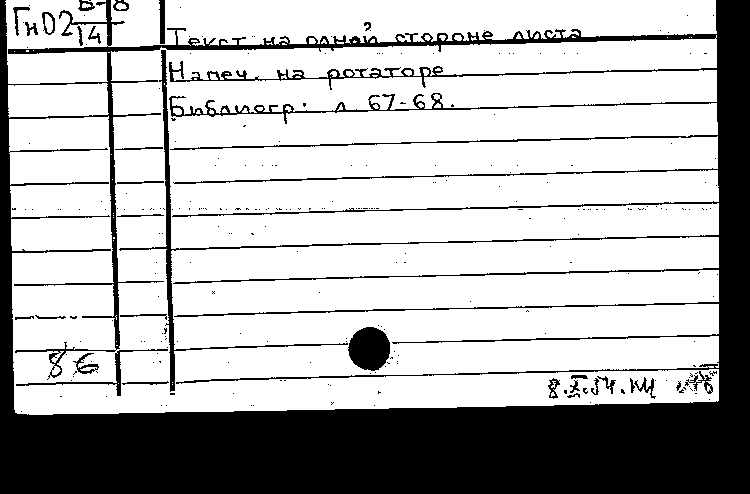 ГнО2 В-8
14
Текст на одной стороне листа
Напеч. на ротаторе
Библиогр: л 67-68.
86
8.X.54.